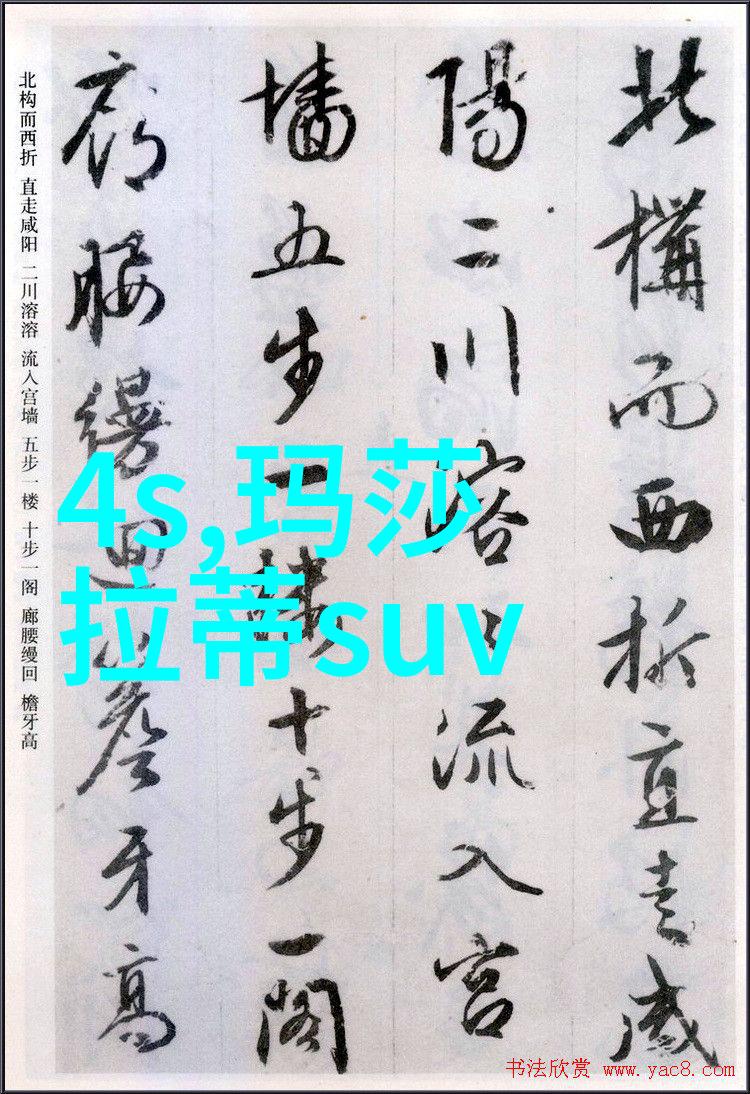 北構而西折直走咸
陽二川溶〻流入宫
墻五步一樓十步一閣
廊腰縵迴簷牙高
北构而西折 直走咸阳 二川溶溶 流入宫墙 五步一楼 十步一阁 廊腰缦回 檐牙高
4s,玛莎
拉蒂suv
书法欣赏 www.yac8.com